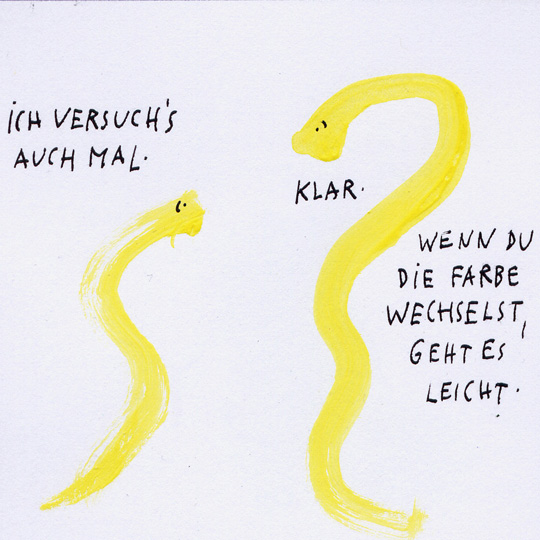 ICH VERSUCH'S
AUCH MAL.
KLAR.
WENN DU
DIE FARBE
WECHSELST,
GEHT ES
LEICHT.